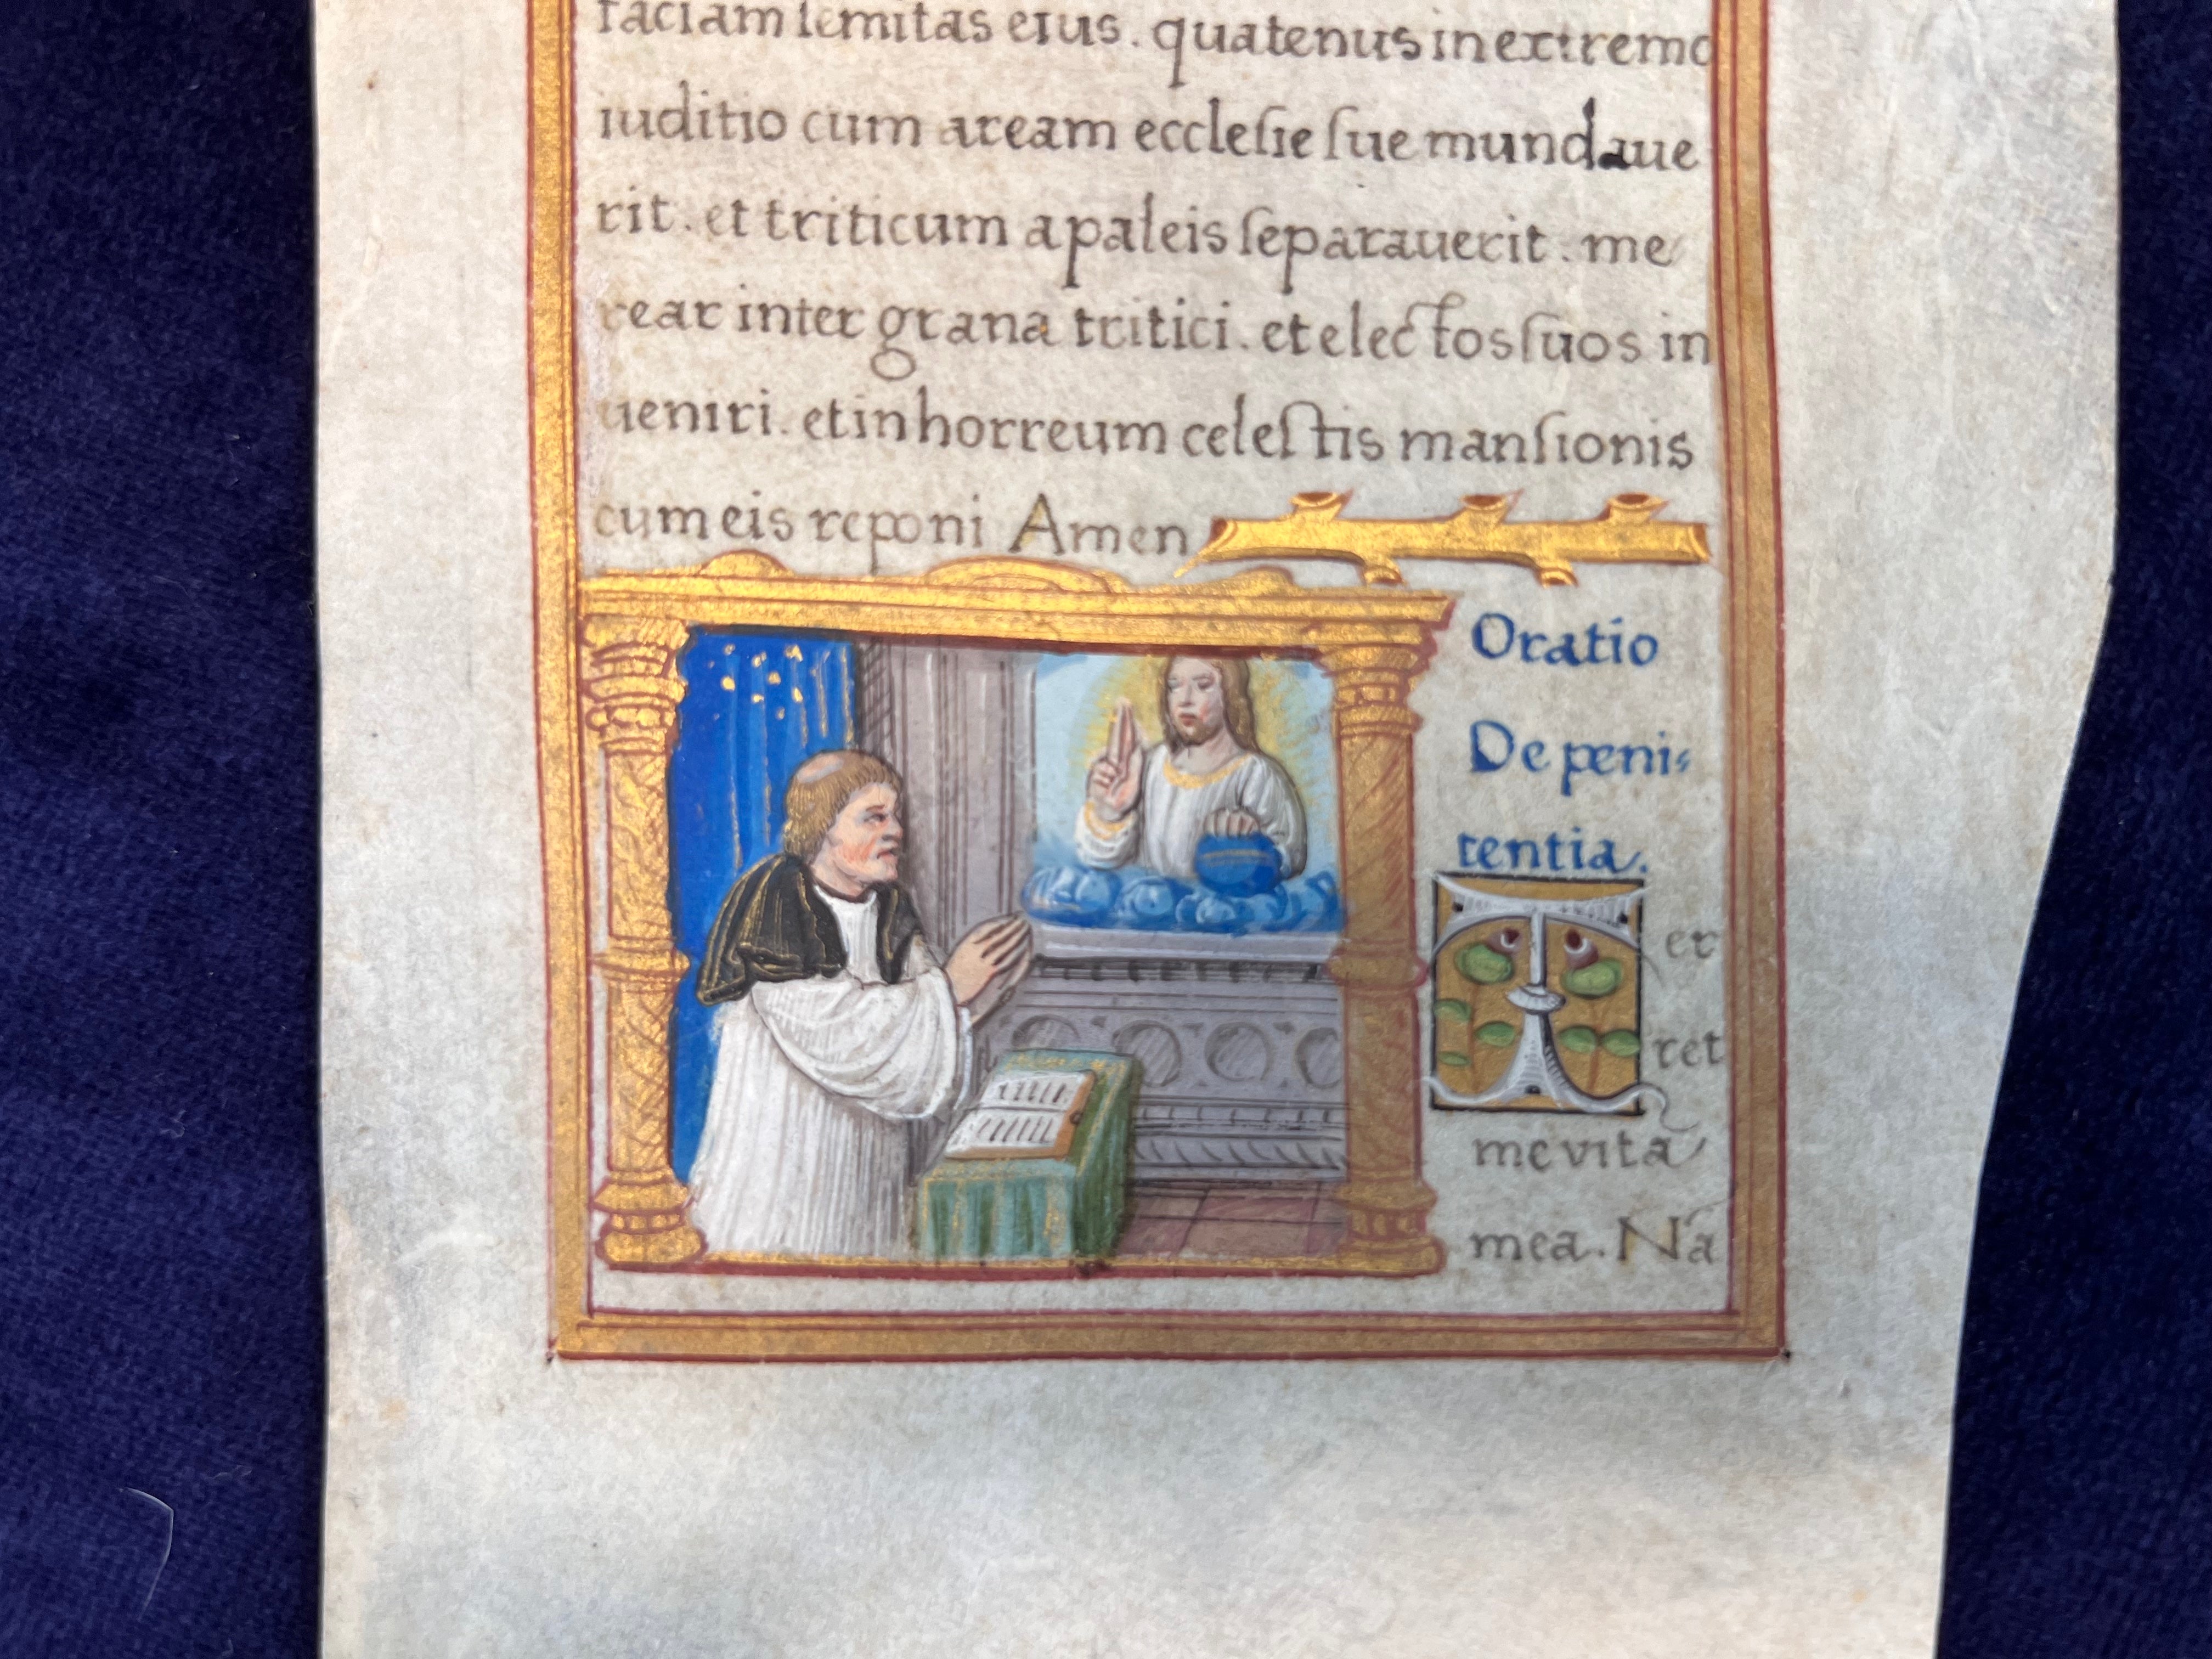 faciam semitas eius. quatenus in extremo
iuditio cum aream ecclesie sue mundaue
rit. et triticum a paleis separauerit. me
rear inter grana tritici. et electos suos in
ueniri. et in horreum celestis mansionis
cum eis reponi Amen
Oratio
De peni
tentia.
Ter
ret
me vita
mea. Na